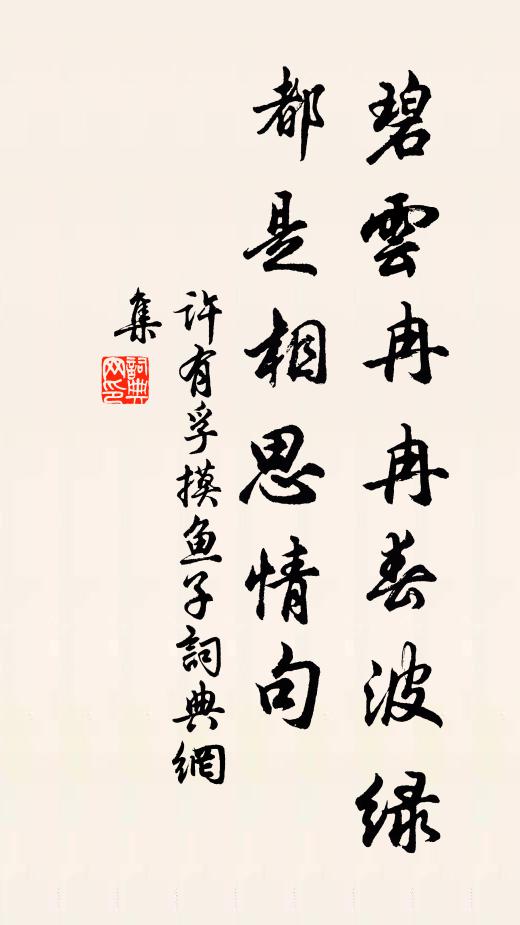 碧雲冉冉春波緑
都是相思情句
許有孚摸鱼子詞典網
集
詞典
网印